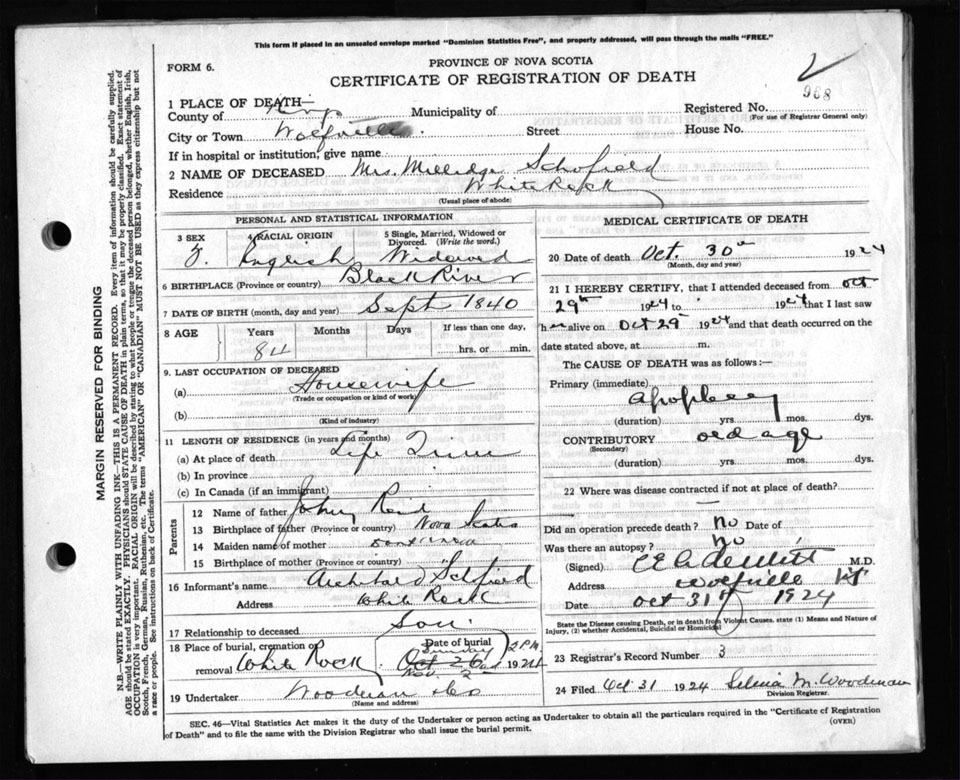 This form if placed in an unsealed envelope marked "Dominion Statistics Free", and properly addressed, will pass through the mails "FREE."
FORM 6.
PROVINCE OF NOVA SCOTIA
CERTIFICATE OF REGISTRATION OF DEATH
968
1 PLACE OF DEATH—
County of Municipality of Registered No.
(For use of Registrar General only)
City or Town Wolfville Street House No.
If in hospital or institution, give name
2 NAME OF DECEASED Mrs. Milledge Schofield
Residence White Rock
(Usual place of abode)
PERSONAL AND STATISTICAL INFORMATION
3 SEX 4 RACIAL ORIGIN 5 Single, Married, Widowed or Divorced. (Write the word.)
F. English Widowed
6 BIRTHPLACE (Province or country) Black River
7 DATE OF BIRTH (month, day and year) Sept 1840
8 AGE Years Months Days If less than one day,
84 hrs. or min.
9. LAST OCCUPATION OF DECEASED
(a) Housewife
(Trade or occupation or kind of work)
(b)
(Kind of industry)
11 LENGTH OF RESIDENCE (in years and months)
(a) At place of death Life Time
(b) In province
(c) In Canada (if an immigrant)
Parents
12 Name of father John Reid
13 Birthplace of father (Province or country) Nova Scotia
14 Maiden name of mother
15 Birthplace of mother (Province or country)
16 Informant's name Archibald Schofield
Address White Rock
17 Relationship to deceased Son
18 Place of burial, cremation or removal White Rock Date of burial Sunday 2 P.M. Oct 26 1924 Nov. 2
19 Undertaker Woodman & Co
(Name and address)
MEDICAL CERTIFICATE OF DEATH
20 Date of death Oct. 30th 1924
(Month, day and year)
21 I HEREBY CERTIFY, that I attended deceased from Oct
29th 1924 to 1924 that I last saw
her alive on Oct 29 1924 and that death occurred on the
date stated above, at m.
The CAUSE OF DEATH was as follows:—
Primary (immediate)
Apoplexy
(duration) yrs. mos. dys.
CONTRIBUTORY old age
(Secondary)
(duration) yrs. mos. dys.
22 Where was disease contracted if not at place of death?
Did an operation precede death? no Date of
Was there an autopsy? no
(Signed) M.D.
Address Wolfville
Date Oct 31st 1924
State the Disease causing Death, or in death from Violent Causes, state (1) Means and Nature of
Injury, (2) whether Accidental, Suicidal or Homicidal
23 Registrar's Record Number 3
24 Filed Oct 31 1924 Selina M. Woodman
Division Registrar.
SEC. 46—Vital Statistics Act makes it the duty of the Undertaker or person acting as Undertaker to obtain all the particulars required in the "Certificate of Registration
of Death" and to file the same with the Division Registrar who shall issue the burial permit.
(OVER)
MARGIN RESERVED FOR BINDING
N.B.—WRITE PLAINLY WITH UNFADING INK—THIS IS A PERMANENT RECORD. Every item of information should be carefully supplied.
AGE should be stated EXACTLY. PHYSICIANS should STATE CAUSE OF DEATH in plain terms, so that it may be properly classified. Exact statement of
OCCUPATION is very important. RACIAL ORIGIN will be described by stating to what people or tongue the deceased person belonged, whether English, Irish,
Scotch, French, German, Russian, Ruthenian, etc. The terms "AMERICAN" or "CANADIAN" MUST NOT BE USED as they express citizenship but not
a race or people. See instructions on back of Certificate.